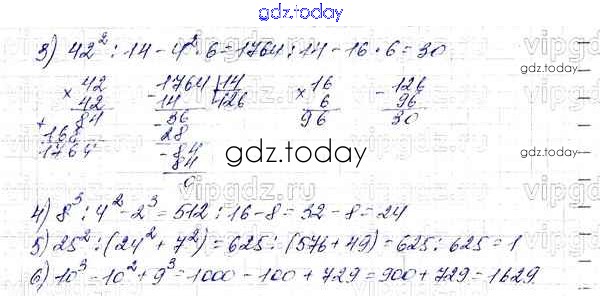 gdz.today
3) 42² : 14 - 4² · 6 = 1764 : 14 - 16 · 6 = 30
× 42
42
+ 84
168
1764
- 1764 | 14
14 126
- 36
28
- 84
84
0
× 16
6
96
- 126
96
30
gdz.today
4) 8³ : 4² - 2³ = 512 : 16 - 8 = 32 - 8 = 24
5) 25² : (24² + 7²) = 625 : (576 + 49) = 625 : 625 = 1
6) 10³ - 10² + 9³ = 1000 - 100 + 729 = 900 + 729 = 1629.
gdz.today